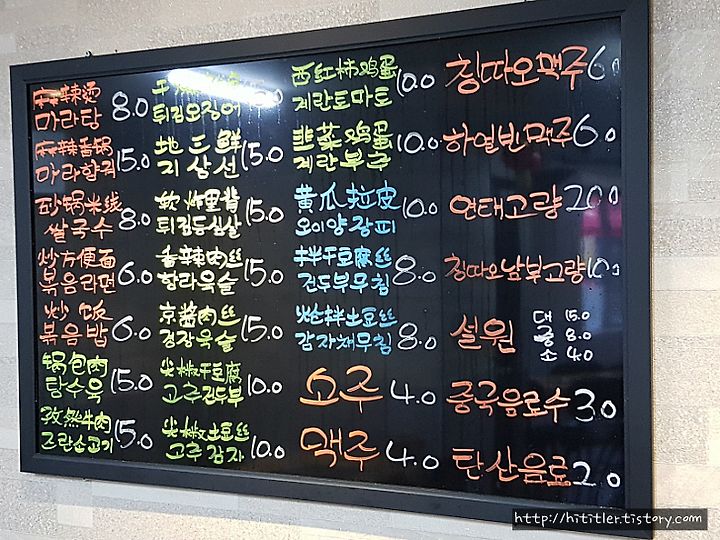 麻辣烫
마라탕 8.0
麻辣香锅
마라향궈 15.0
砂锅米线
쌀국수 8.0
炒方便面
볶음라면 6.0
炒饭
볶음밥 6.0
锅包肉
탕수육 15.0
孜然牛肉
즈란소고기 15.0
튀김오징어
地三鲜
지삼선 15.0
软炸里脊
튀김등심살 15.0
香辣肉丝
향라육슬 15.0
京酱肉丝
경장육슬 15.0
尖椒干豆腐
고추건두부 10.0
尖椒土豆丝
고추감자 10.0
西红柿鸡蛋
계란토마토 10.0
韭菜鸡蛋
계란부추 10.0
黄瓜拉皮
오이양장피 10.0
拌干豆腐丝
건두부무침 8.0
炝拌土豆丝
감자채무침 8.0
소주 4.0
맥주 4.0
칭따오맥주 6.0
하얼빈맥주 6.0
연태고량 20.0
칭따오남부고량 10.0
설원
대 15.0
중 8.0
소 4.0
중국음료수 3.0
탄산음료 2.0
http://hititler.tistory.com